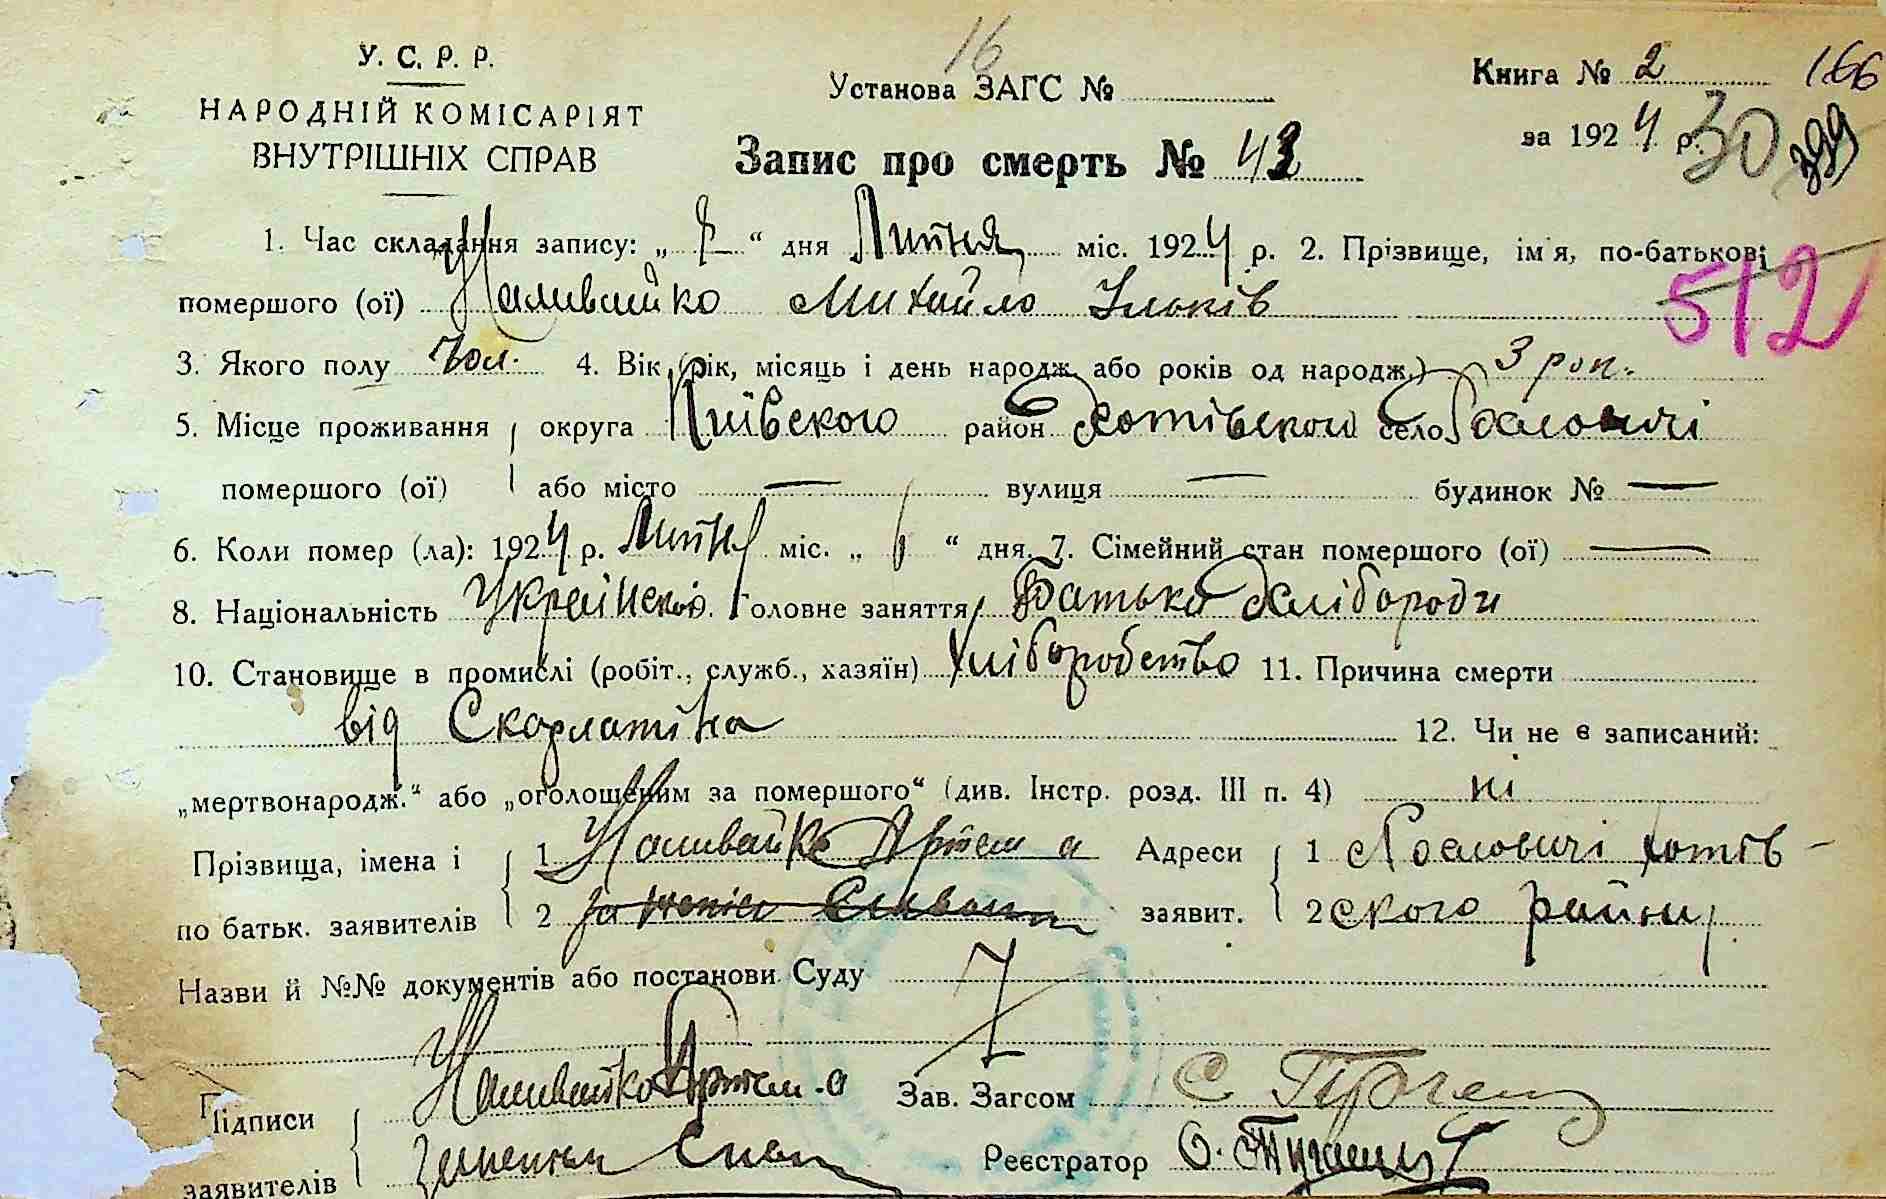 У. С. Р. Р.
НАРОДНІЙ КОМІСАРІЯТ
ВНУТРІШНІХ СПРАВ
16
Установа ЗАГС №
Запис про смерть № 43
Книга № 2 166
за 1924 р. 30 399
1. Час складання запису: „ “ дня Липня міс. 1924 р. 2. Прізвище, ім'я, по-батькові
помершого (ої) Наливайко Михайло Ільків
512
3. Якого полу Чол. 4. Вік (рік, місяць і день народж. або років од народж.) 3 рок.
5. Місце проживання округа Київского район Хотівского село
помершого (ої) або місто — вулиця — будинок № —
6. Коли помер (ла): 1924 р. Липня міс. „ 6 “ дня. 7. Сімейний стан помершого (ої) —
8. Національність Українська. Головне заняття Батька Хлібороди
10. Становище в промислі (робіт., служб., хазяїн) Хліборобство 11. Причина смерти
від Скарлатіна 12. Чи не є записаний:
„мертвонародж.“ або „оголошеним за помершого“ (див. Інстр. розд. III п. 4) ні
Прізвища, імена і 1 Наливайко Артем а Адреси 1 хотів-
по батьк. заявителів 2 заявит. 2 ского району
Назви й №№ документів або постанови Суду
Підписи Наливайко Артем-а Зав. Загсом С.
заявителів Реєстратор О.